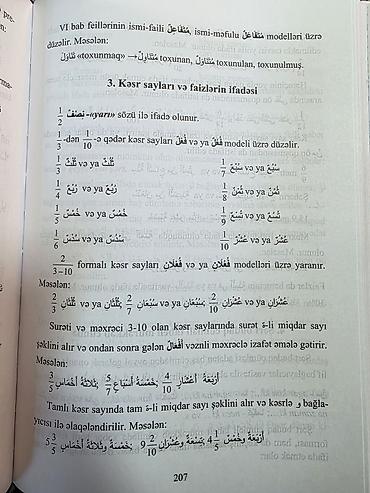 VI bab feillərinin ismi-faili مُتَفَاعِلٌ, ismi-məfulu مُتَفَاعَلٌ modelləri üzrə
düzəlir. Məsələn:
تَنَاوَلَ «toxunmaq» → مُتَنَاوِلٌ toxunan, مُتَنَاوَلٌ toxunulan, toxunulmuş.
3. Kəsr sayları və faizlərin ifadəsi
1/2 نِصْفٌ -«yarı» sözü ilə ifadə olunur.
1/3-dən 1/10-ə qədər kəsr sayları فُعْلٌ və ya فُعُلٌ modeli üzrə düzəlir.
1/3 ثُلْثٌ və ya ثُلُثٌ 1/7 سُبْعٌ və ya سُبُعٌ
1/4 رُبْعٌ və ya رُبُعٌ 1/8 ثُمْنٌ və ya ثُمُنٌ
1/5 خُمْسٌ və ya خُمُسٌ 1/9 تُسْعٌ və ya تُسُعٌ
1/6 سُدْسٌ və ya سُدُسٌ 1/10 عُشْرٌ və ya عُشُرٌ
2/3–10 formalı kəsr sayları فُعْلَانِ və ya فُعُلَانِ modelləri üzrə yaranır.
Məsələn:
2/3 ثُلْثَانِ və ya ثُلُثَانِ; 2/7 سُبْعَانِ və ya سُبُعَانِ; 2/10 عُشْرَانِ və ya عُشُرَانِ
Surəti və məxrəci 3-10 olan kəsr saylarında surət ة-li miqdar sayı
şəklini alır və ondan sonra gələn أَفْعَالٌ vəznli məxrəclə izafət əmələ gətirir.
Məsələn:
3/5 ثَلَاثَةُ أَخْمَاسٍ; 5/7 خَمْسَةُ أَسْبَاعٍ; 4/10 أَرْبَعَةُ أَعْشَارٍ
Tamlı kəsr sayında tam ة-li miqdar sayı şəklini alır və kəsrlə و bağla-
yıcısı ilə əlaqələndirilir. Məsələn:
5 3/5 خَمْسَةٌ وَثَلَاثَةُ أَخْمَاسٍ; 9 2/10 تِسْعَةٌ وَعُشْرَانِ; 4 1/5 أَرْبَعَةٌ وَخُمْسٌ
207